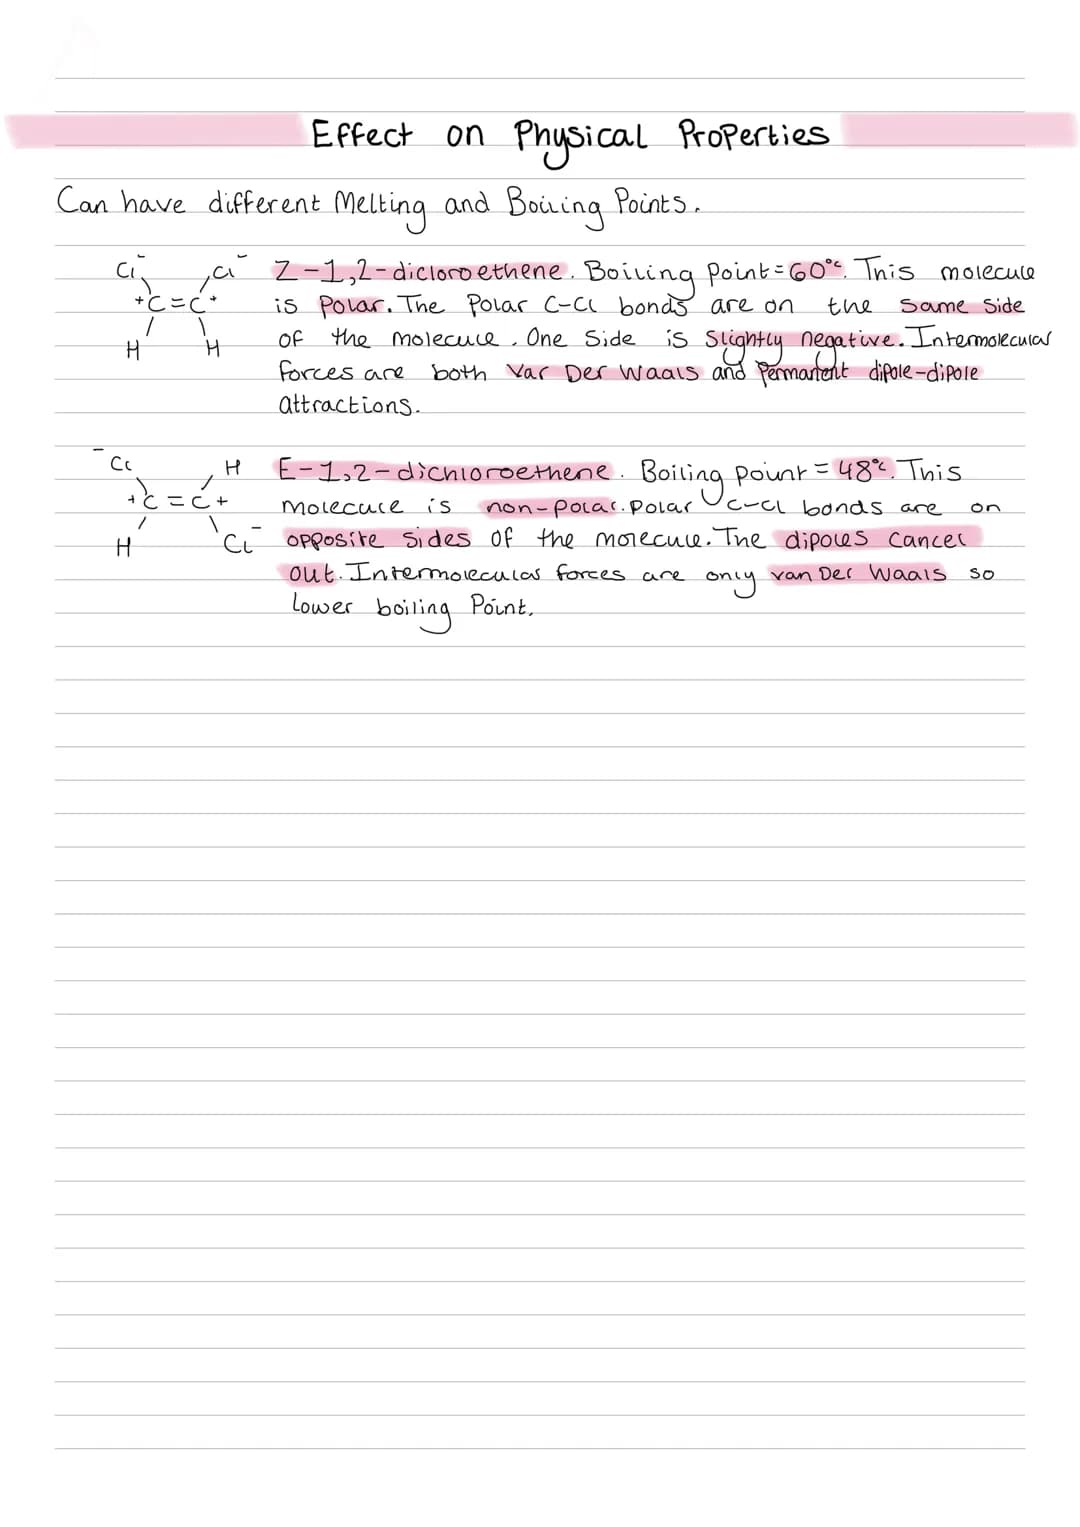 Effect on Physical Properties
Can have different Melting and Boiling Points.
Cl⁻ Cl⁻ Z-1,2-dicloroethene. Boiling Point=60°C. This molecule
⁺C=C⁺ is Polar. The Polar C-Cl bonds are on the Same Side
H H of the molecule. One Side is Slightly negative. Intermolecular
forces are both Var Der Waals and Permanent dipole-dipole
attractions.
⁻Cl H E-1,2-dichloroethene. Boiling point = 48°C. This
⁺C=C⁺ molecule is non-polar. Polar C-Cl bonds are on
H Cl⁻ opposite sides of the molecule. The dipoles Cancel
out. Intermolecular forces are only van Der Waals so
Lower boiling Point.